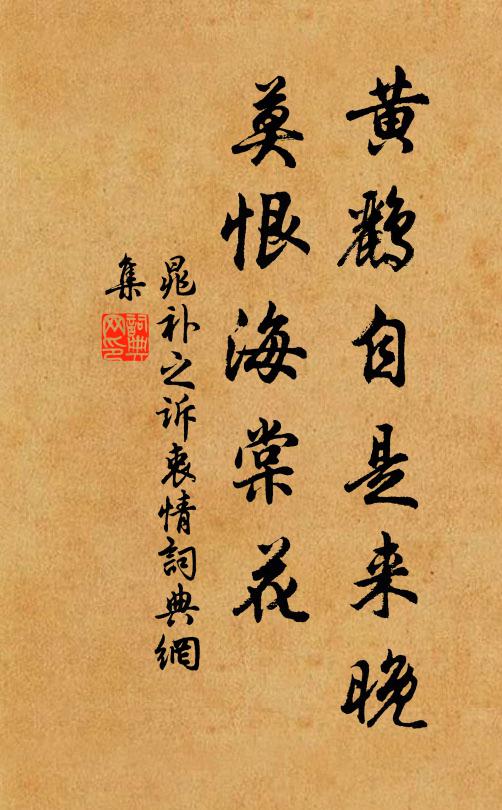 黄鸝自是来晚
莫恨海棠花
晁补之诉衷情詞典網
集
詞典
网印